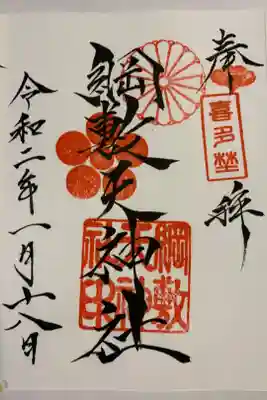 奉拝
喜多埜
綱敷天神社
綱敷天神社印
令和二年一月十八日